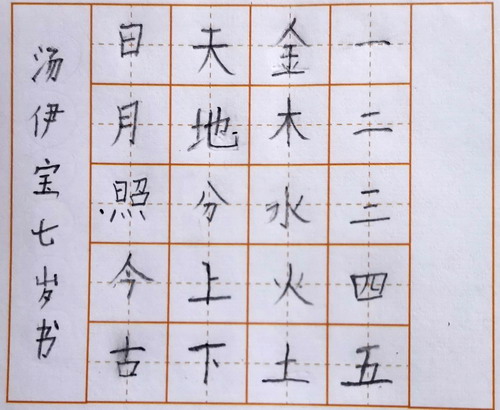 一二三四五
金木水火土
天地分上下
日月照今古
汤伊宝七岁书